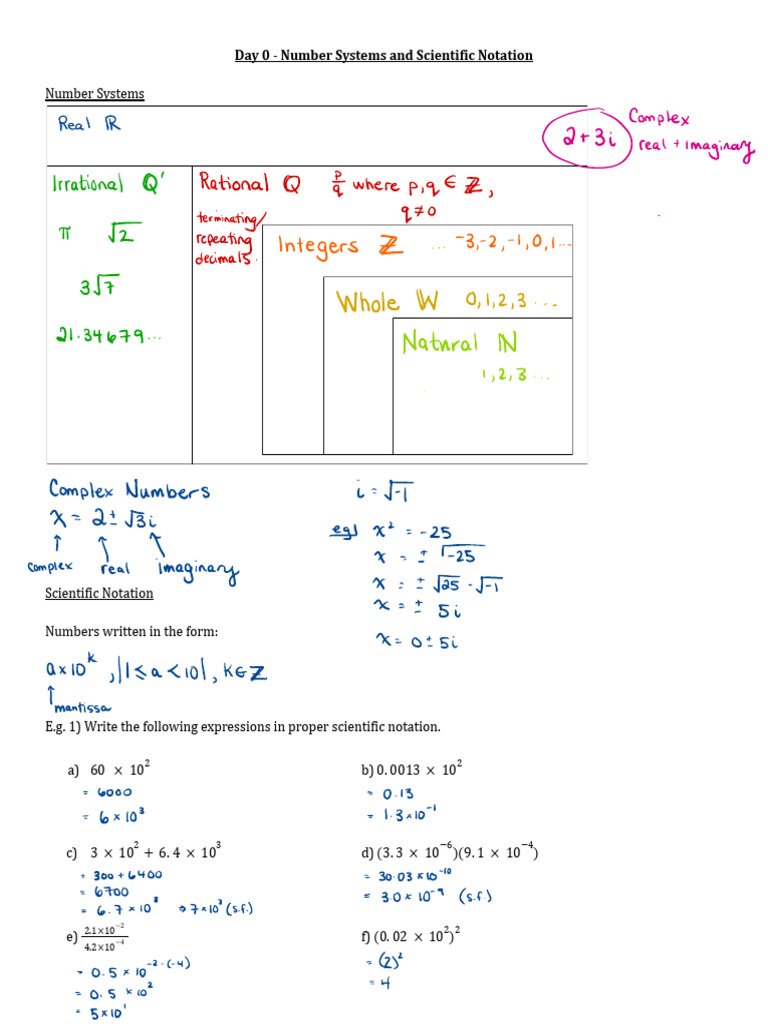 Day 0 - Number Systems and Scientific Notation
Number Systems
Real ℝ
2 + 3i
Complex
real + imaginary
Irrational Q'
π √2
3√7
21.34679...
Rational Q p/q where p,q ∈ ℤ,
q≠0
terminating/
repeating
decimals.
Integers ℤ ... -3,-2,-1,0,1...
Whole W 0,1,2,3 ...
Natural ℕ
1,2,3...
Complex Numbers
x = 2 ± √3i
complex real imaginary
i = √-1
eg) x² = -25
x = ± √-25
x = ± √25 · √-1
x = ± 5i
x = 0 ± 5i
Scientific Notation
Numbers written in the form:
a×10ᵏ , |1 ≤ a < 10|, k∈ℤ
mantissa
E.g. 1) Write the following expressions in proper scientific notation.
a) 60 × 10²
= 6000
= 6 × 10³
b) 0.0013 × 10²
= 0.13
= 1.3 × 10⁻¹
c) 3 × 10² + 6.4 × 10³
= 300 + 6400
= 6700
= 6.7 × 10³ ⇒ 7 × 10³ (s.f.)
d) (3.3 × 10⁻⁶)(9.1 × 10⁻⁴)
= 30.03 × 10⁻¹⁰
= 3.0 × 10⁻⁹ (s.f.)
e) 2.1×10⁻² / 4.2×10⁻⁴
= 0.5 × 10⁻²⁻⁽⁻⁴⁾
= 0.5 × 10²
= 5 × 10¹
f) (0.02 × 10²)²
= (2)²
= 4